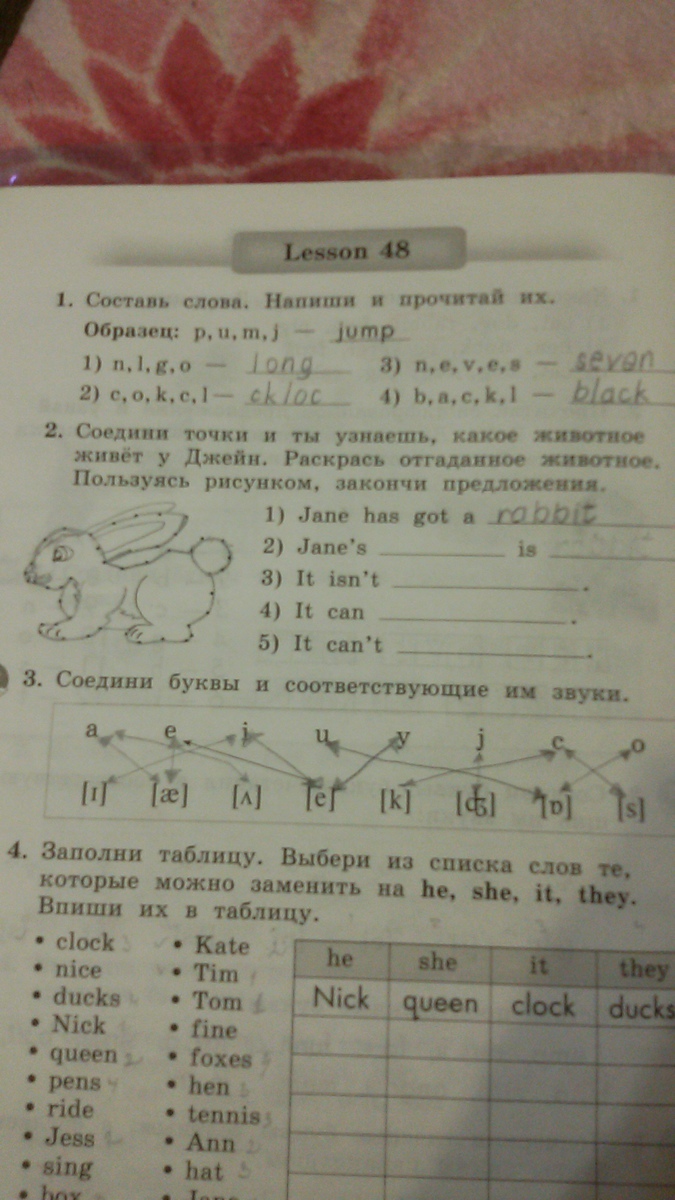 Lesson 48
1. Составь слова. Напиши и прочитай их.
Образец: p, u, m, j — jump
1) n, l, g, o — long
3) n, e, v, e, s — seven
2) c, o, k, c, l — ckloc
4) b, a, c, k, l — black
2. Соедини точки и ты узнаешь, какое животное
живёт у Джейн. Раскрась отгаданное животное.
Пользуясь рисунком, закончи предложения.
1) Jane has got a rabbit
2) Jane's ________ is ________
3) It isn't ________.
4) It can ________.
5) It can't ________.
3. Соедини буквы и соответствующие им звуки.
a e i u y j c o
[ɪ] [æ] [ʌ] [e] [k] [ʤ] [ɒ] [s]
4. Заполни таблицу. Выбери из списка слов те,
которые можно заменить на he, she, it, they.
Впиши их в таблицу.
• clock
• nice
• ducks
• Nick
• queen
• pens
• ride
• Jess
• sing
• box
• Kate
• Tim
• Tom
• fine
• foxes
• hen
• tennis
• Ann
• hat
• Jane
he she it they
Nick queen clock ducks